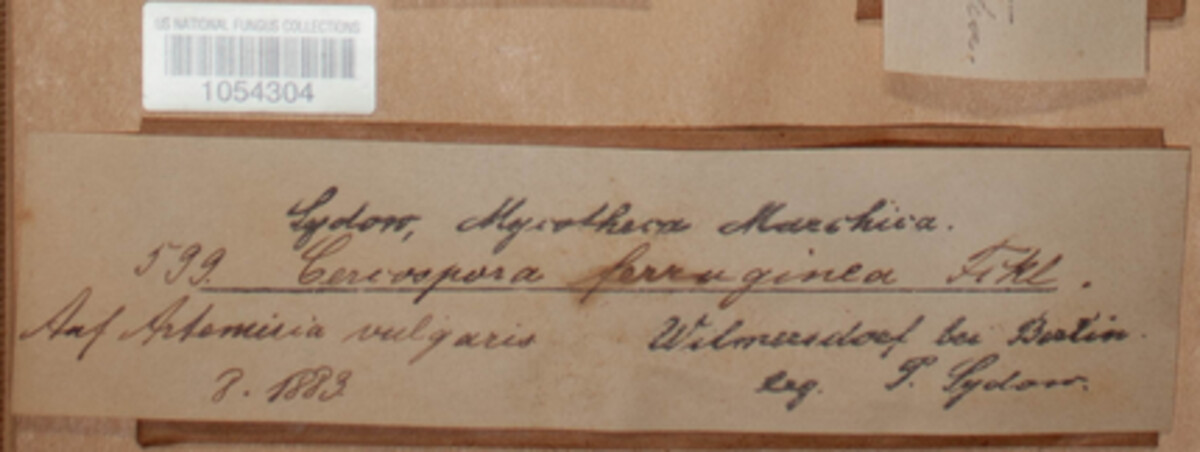 US NATIONAL FUNGUS COLLECTIONS
1054304
Sydow, Mycotheca Marchica.
599. Cercospora ferruginea Fckl.
Auf Artemisia vulgaris
Wilmersdorf bei Berlin.
8. 1883
leg. P. Sydow.